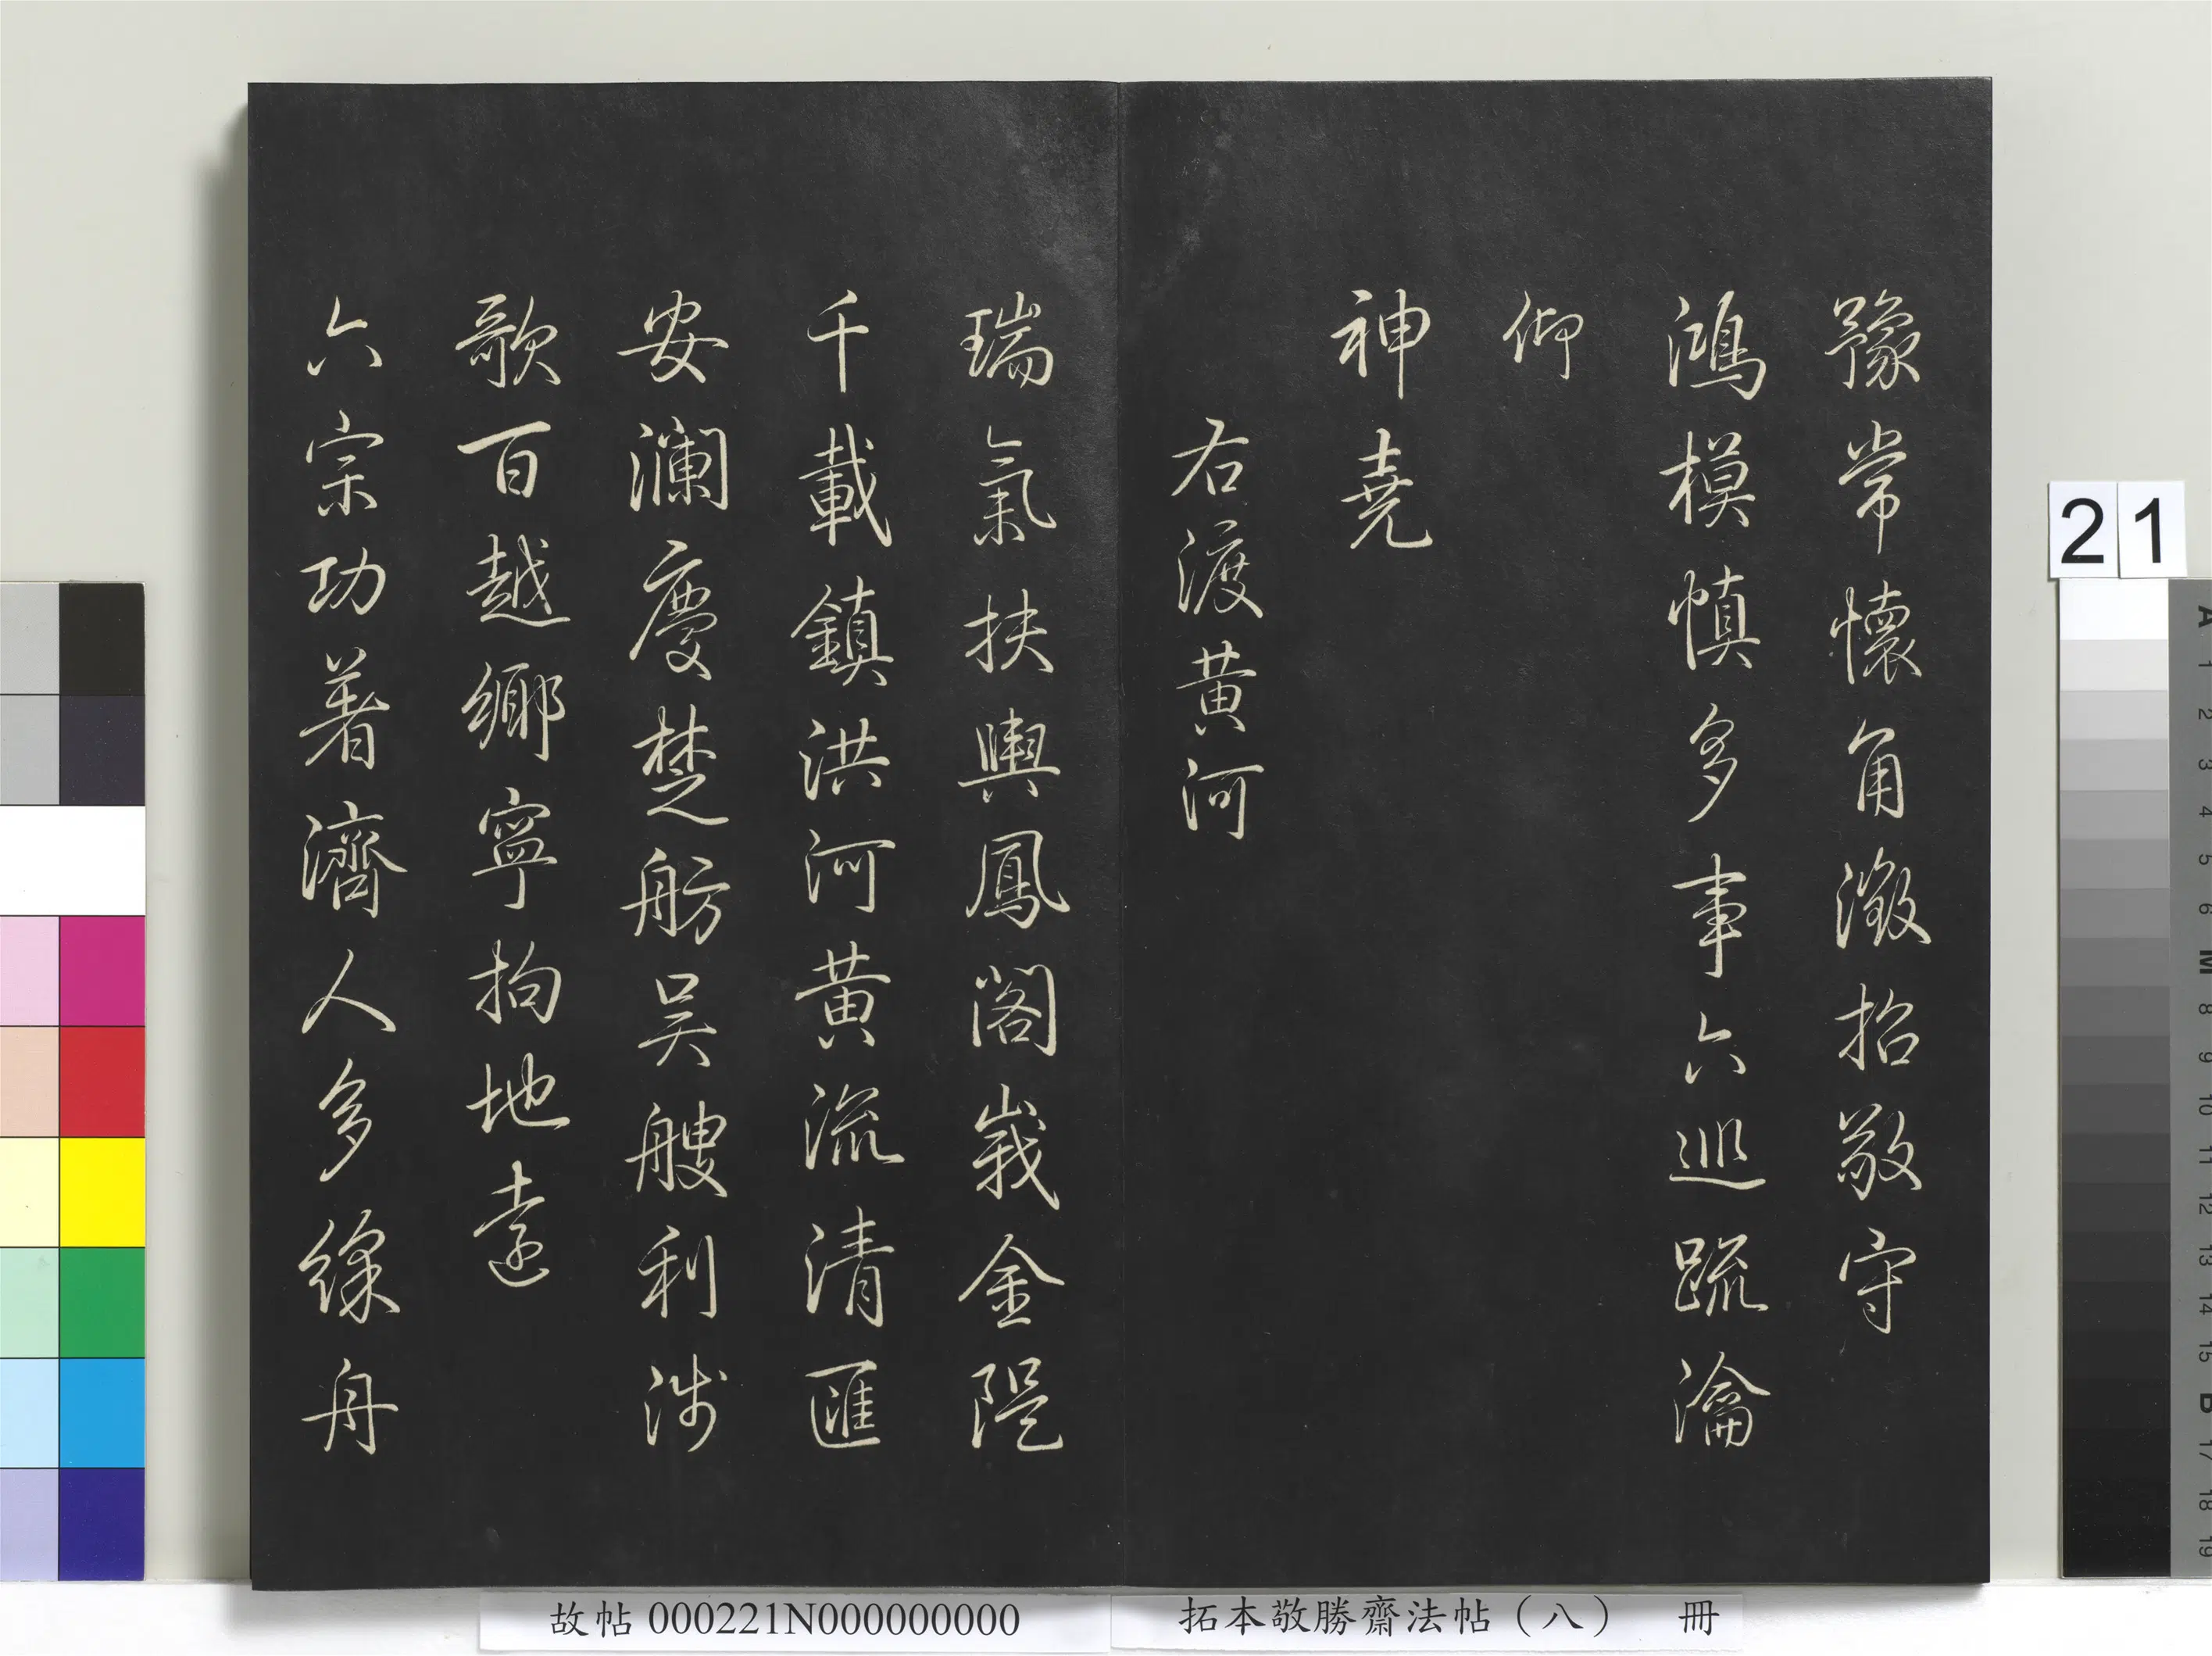 豫常懷角徵招敬守
鴻模慎多事六巡疏瀹
仰
神堯
右渡黃河
瑞氣扶輿鳳閣峩金隄
千載鎮洪河黃流清匯
安瀾慶楚舫吳艘利涉
歌百越鄉寧拘地遠
六宗功著濟人多綵舟
21
A 1 2 3 4 5 6 M 8 9 10 11 12 13 14 15 B 17 18 19
拓本敬勝齋法帖（八） 冊
故帖 000221N000000000